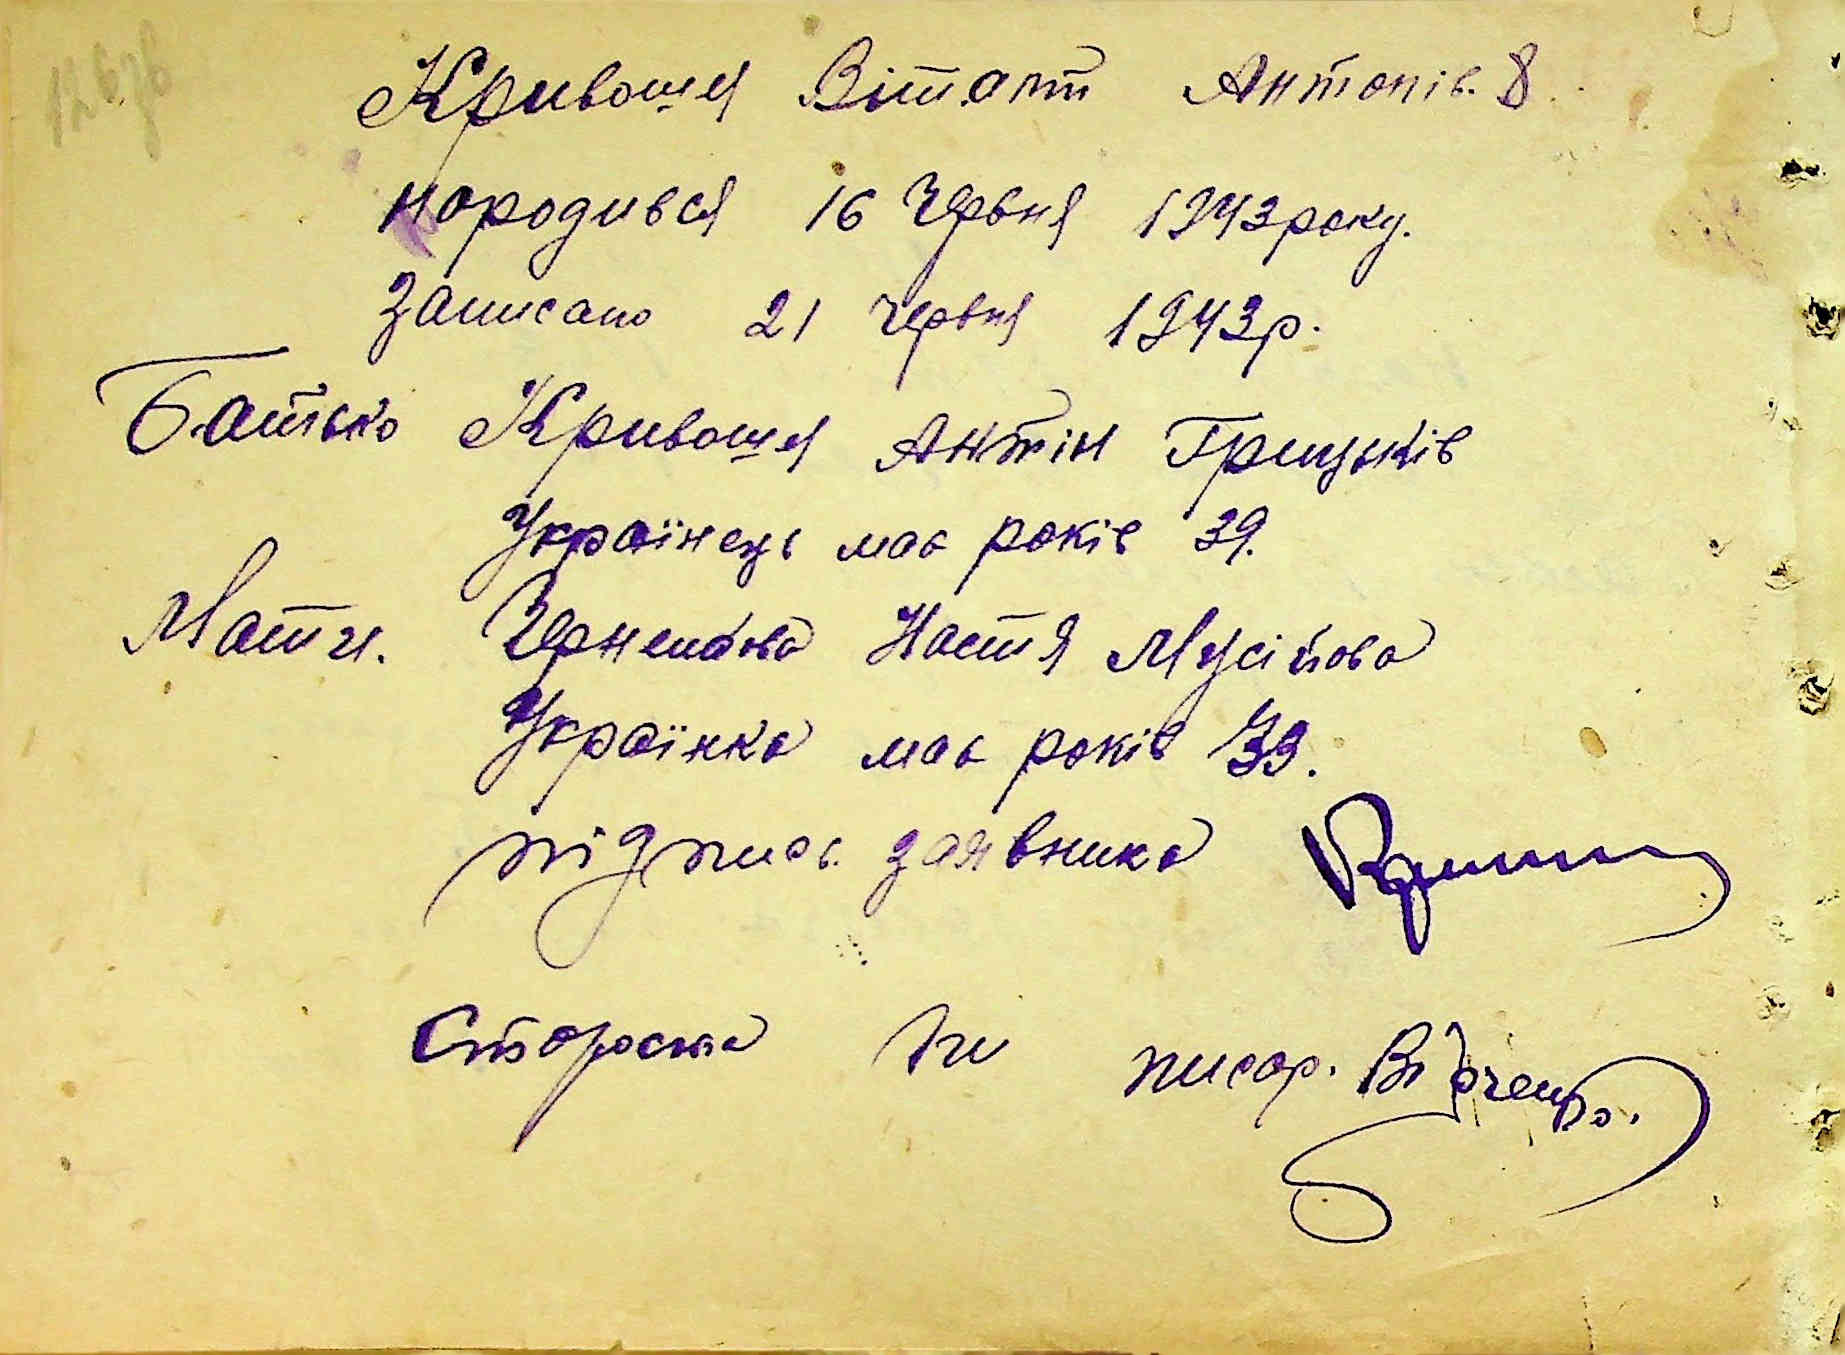 Кривошея Віталій Антонів.
народився 16 Червня 1943 року.
записано 21 червня 1943 р.
Батько Кривошея Антін Грицьків
Українець має років 39.
Мати. Настя Мусійова
Українка має років 33.
підпись заявника
Староста писар.